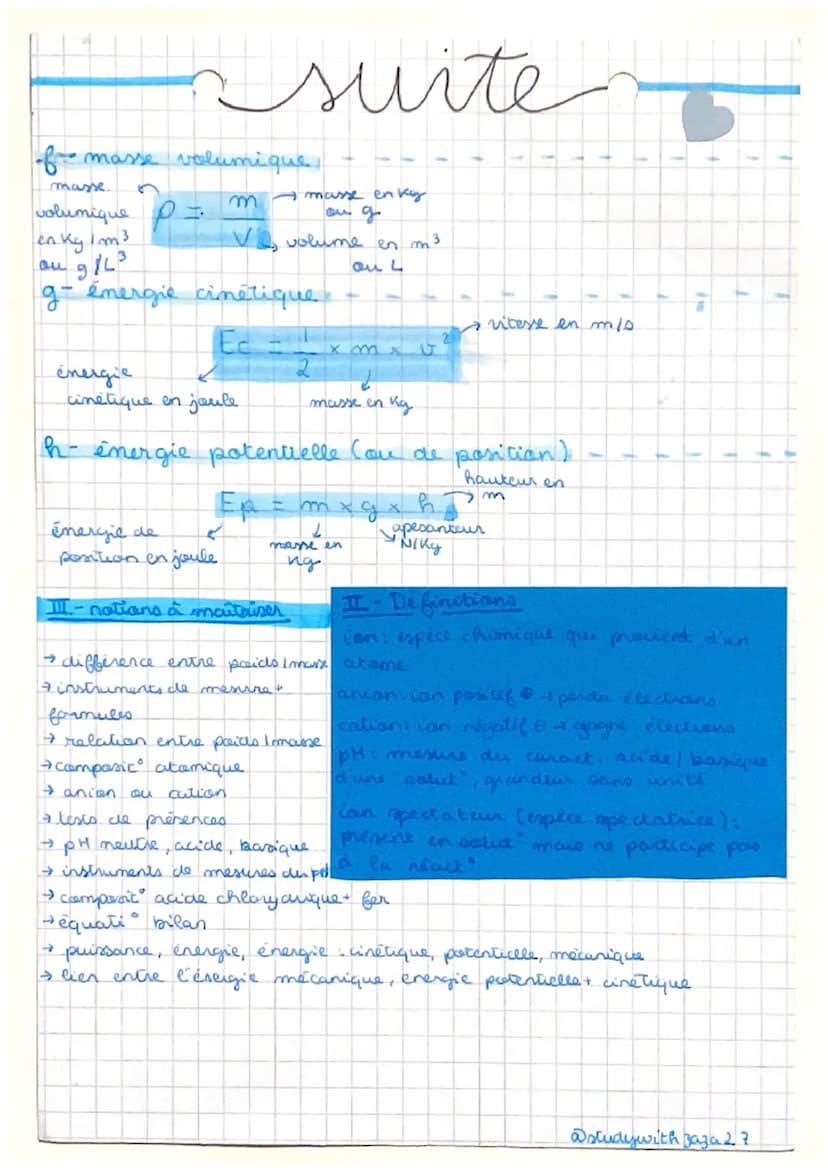 suite
f- masse volumique
masse
volumique
en kg/m³
ou g/L³
ρ = m / V
→ masse en kg
ou g
→ volume en m³
ou L
g- énergie cinétique
Ec = 1/2 × m × v²
→ vitesse en m/s
énergie
cinétique en joule
masse en kg
h- énergie potentielle (ou de position)
hauteur en
m
Ep = m × g × h
énergie de
position en joule
masse en
kg
apesanteur
N/kg
III - notions à maîtriser
→ différence entre poids/masse
→ instruments de mesure +
formules
→ relation entre poids/masse
→ composic° atomique
→ anion ou cation
→ tests de présences
→ pH neutre, acide, basique
→ instruments de mesures du pH
→ composit° acide chlorydrique + fer
→ équati° bilan
→ puissance, énergie, énergie : cinétique, potentielle, mécanique
→ lien entre l'énergie mécanique, énergie potentielle + cinétique
II - Définitions
ion : espèce chimique qui provient d'un
atome
anion : ion positif ⊕ → perdu électrons
cation : ion négatif ⊖ → gagné électrons
pH : mesure du caract. acide / basique
d'une solut°, grandeur sans unité
ion spectateur (espèce spectatrice) :
présent en solut° mais ne participe pas
à la réact°
@studywithzaza27